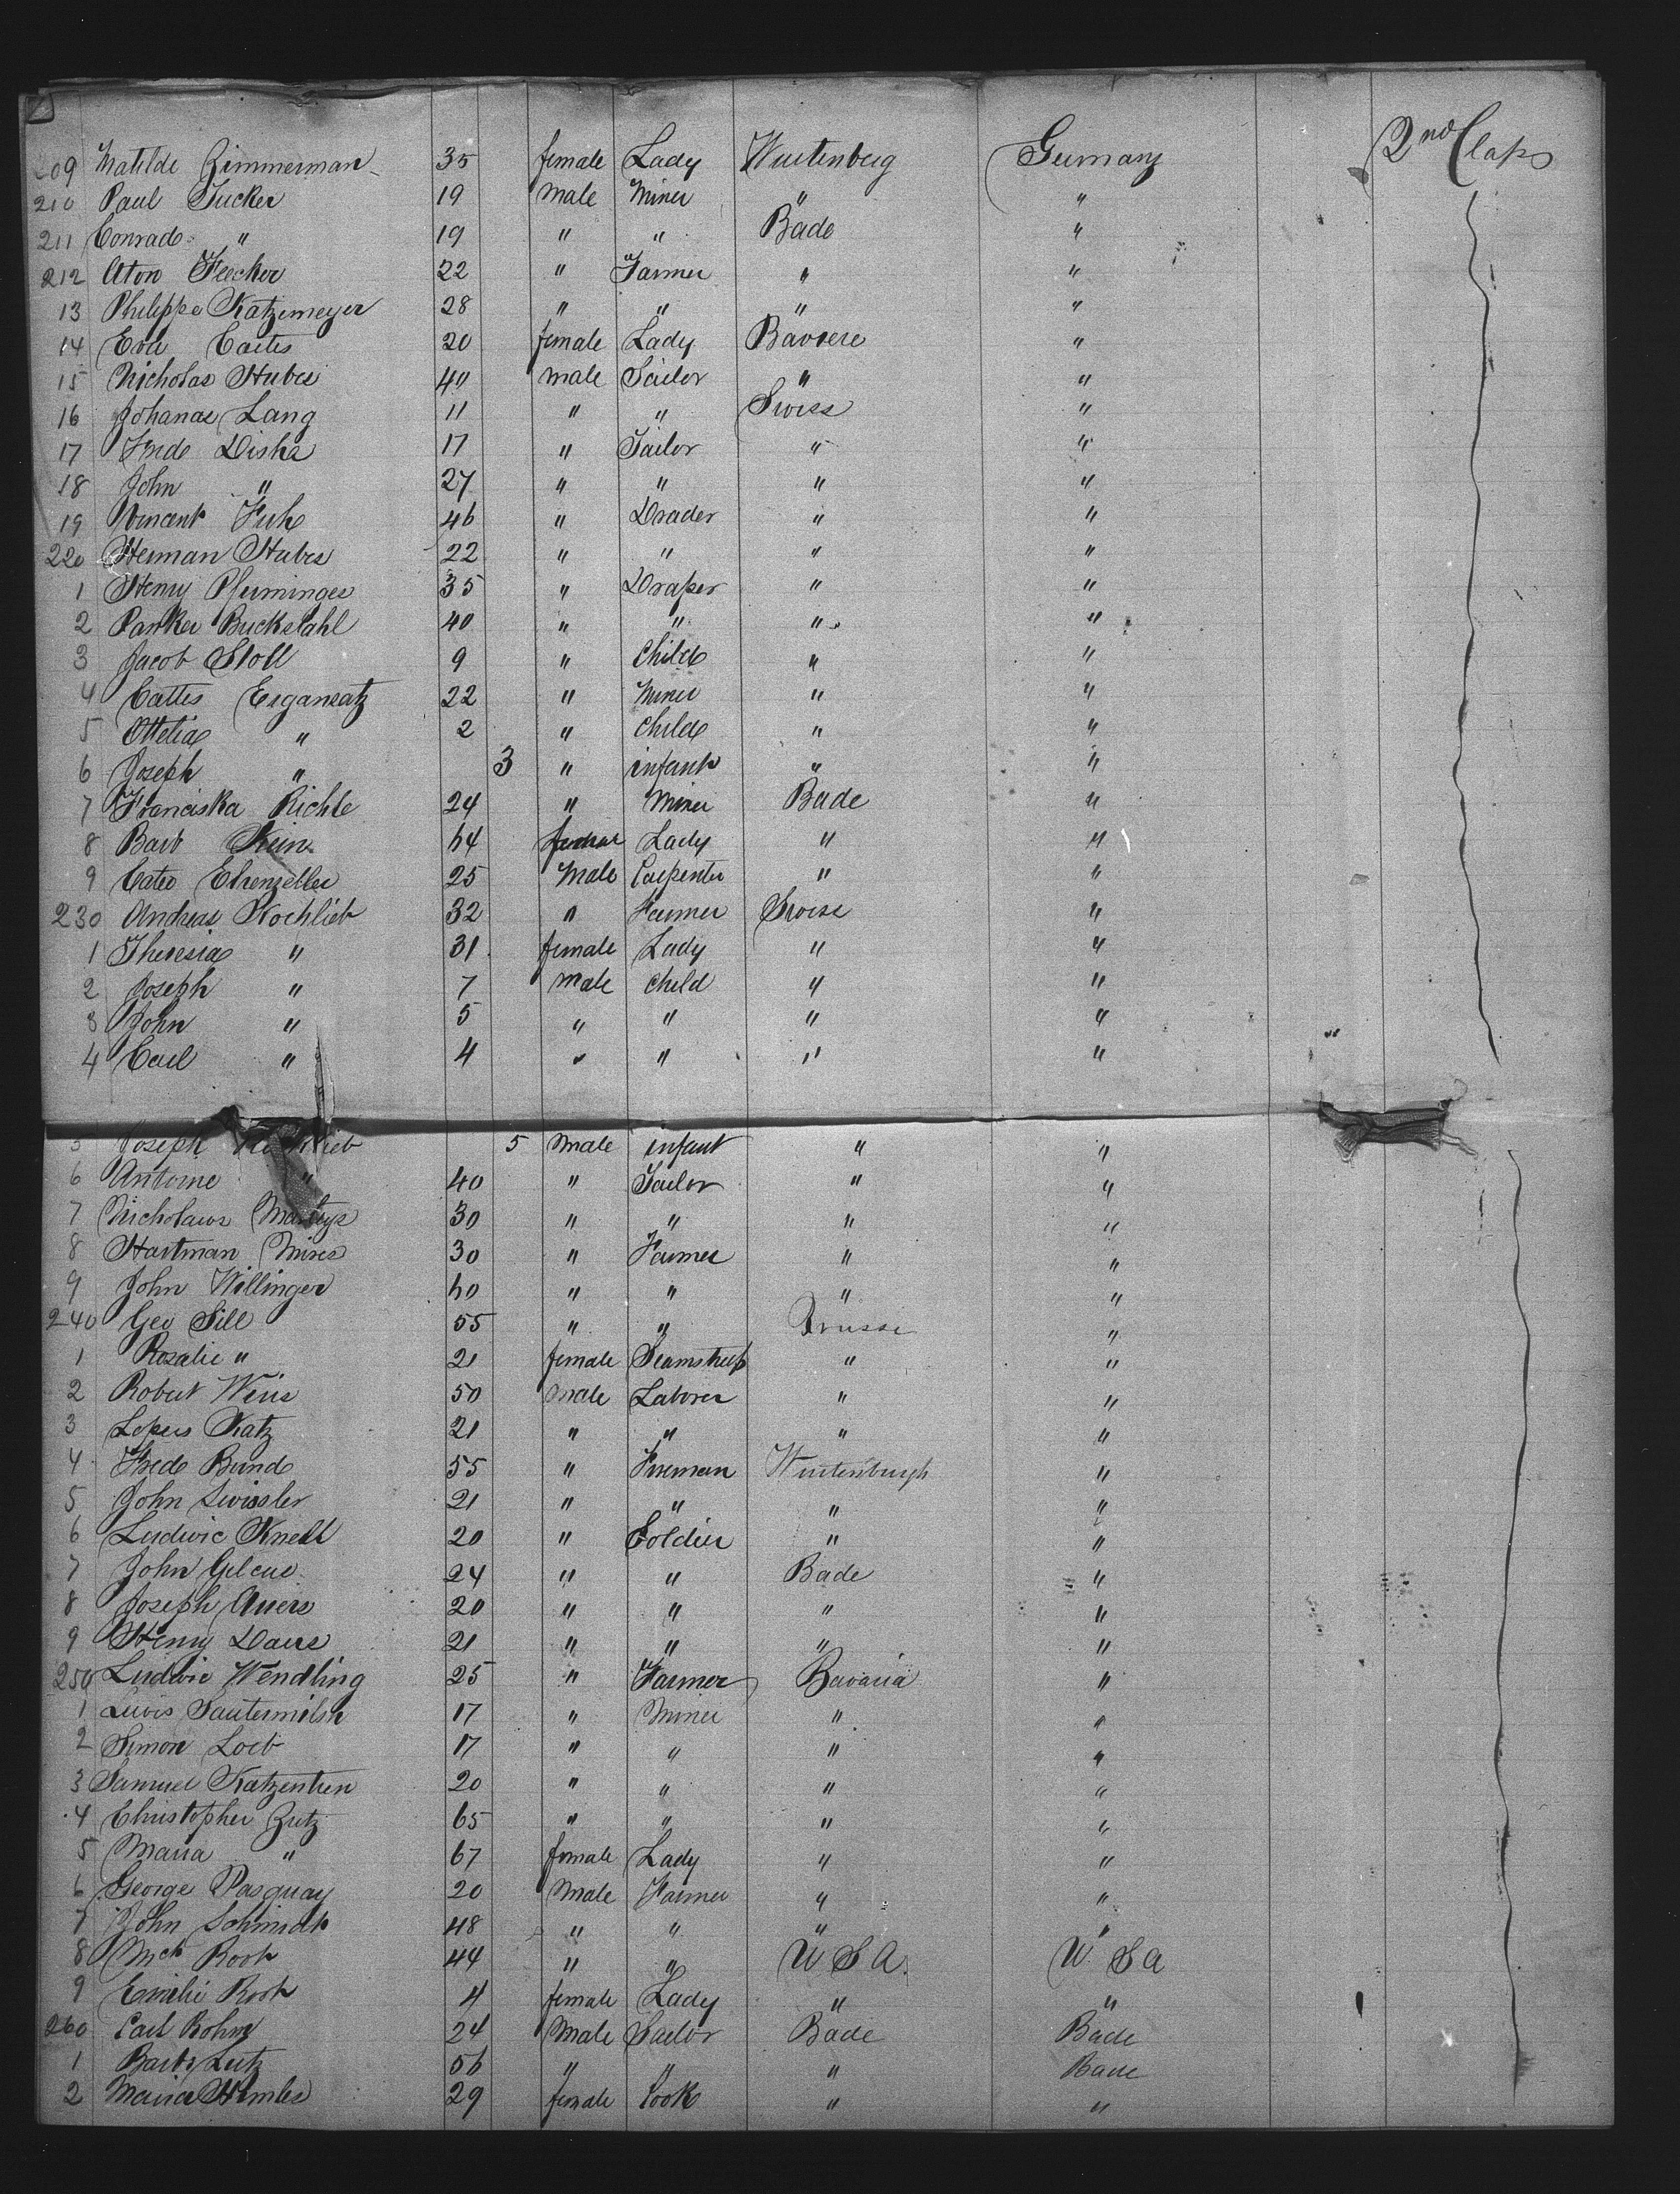 209 Matilde Zimmerman 35 female Lady Wurtenberg Germany 2nd Class
210 Paul Tucker 19 male Miner " "
211 Conrad " 19 " " Bade "
212 Aton Flecker 22 " Farmer " "
13 Philippe Katzemeyer 28 " " " "
14 Eva 20 female Lady Baviere "
15 Nicholas Huber 40 male Sailor " "
16 Johanas Lang 11 " " Swiss "
17 Fred Dishe 17 " Tailor " "
18 John " 27 " " " "
19 Vincent 46 " Drader " "
220 Herman Huber 22 " " " "
1 Henry Pfuminger 35 " Draper " "
2 Parker Buckstahl 40 " " " "
3 Jacob Stoll 9 " Child " "
4 Cattes Ergansatz 22 " Miner " "
5 Ottelia " 2 " Child " "
6 Joseph " 3 " infant " "
7 Franciska Richle 24 " Miner Bade "
8 Barb 64 female Lady " "
9 Cateo Ehrenzeller 25 Male Carpenter " "
230 Andreas Nochlieb 32 " Farmer Swise "
1 Theresia " 31 female Lady " "
2 Joseph " 7 male Child " "
3 John " 5 " " " "
4 Carl " 4 " " " "
5 Joseph 5 Male infant " "
6 Antoine " 40 " Tailor " "
7 Nicholaus 30 " " " "
8 Hartman Mires 30 " Farmer " "
9 John Willinger 60 " " " "
240 Geo Sill 55 " " Prusse "
1 Rozalie " 21 female Seamstress " "
2 Robert Weis 50 male Laborer " "
3 Katz 21 " " " "
4 Fred Bund 55 " Fireman Wurtenburgh "
5 John Swissler 21 " " " "
6 Ludwic Knell 20 " Soldier " "
7 John 24 " " Bade "
8 Joseph Auers 20 " " " "
9 Henry Daus 21 " " " "
250 Ludwic Wendling 25 " Farmer Bavaria "
1 Lewis Sautermilsh 17 " Miner " "
2 Simon Loeb 17 " " " "
3 Samuel Katzentien 20 " " " "
4 Christopher Zutz 65 " " " "
5 Maria " 67 female Lady " "
6 George Pasquay 20 Male Farmer " "
7 John Schmidt 48 " " " "
8 Mck Rook 44 " " U S A. U S A
9 Emilie Rook 4 female Lady " "
260 Carl Bohm 24 Male Sailor Bade Bade
1 Barb Lutz 56 " " " Bade
2 Maria Himler 29 female Cook " "